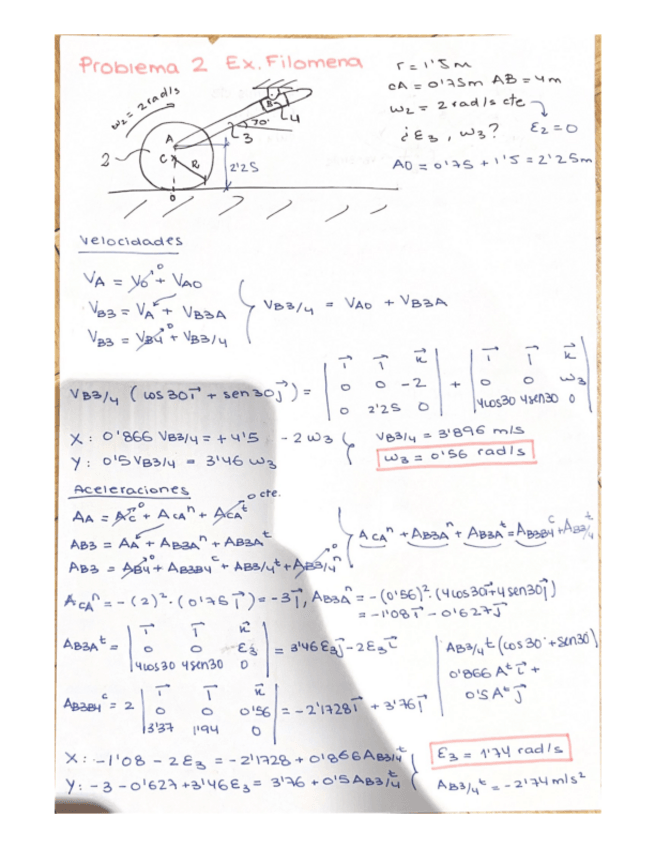 Problema 2 Ex. Filomena
r = 1'5 m
CA = 0'75m AB = 4m
ω2 = 2 rad/s cte
¿ε3, ω3? ε2 = 0
AO = 0'75 + 1'5 = 2'25m
ω2 = 2 rad/s
2
A
C
R
O
3
B
4
2'25
Velocidades
VA = V0 + VAO
0
VB3 = VA + VB3A
VB3 = VB4 + VB3/4
0
VB3/4 = VAO + VB3A
VB3/4 (cos30i + sen30j) = | i j k | + | i j k |
0 0 -2 0 0 ω3
0 2'25 0 4cos30 4sen30 0
X: 0'866 VB3/4 = +4'5 - 2ω3
Y: 0'5 VB3/4 = 3'46 ω3
VB3/4 = 3'896 m/s
ω3 = 0'56 rad/s
Aceleraciones
AA = AC + ACAn + ACAt
0 0 cte.
AB3 = AA + AB3An + AB3At
AB3 = AB4 + AB3B4c + AB3/4t + AB3/4n
0 0
ACAn + AB3An + AB3At = AB3B4c + AB3/4t
ACAn = -(2)²·(0'75j) = -3j, AB3An = -(0'56)²·(4cos30i+4sen30j)
= -1'08i - 0'627j
AB3At = | i j k | = 3'46ε3j - 2ε3i
0 0 ε3
4cos30 4sen30 0
AB3/4t (cos30 + sen30)
0'866 Ati +
0'5 Atj
AB3B4c = 2 | i j k | = -2'1728i + 3'76j
0 0 0'56
3'37 1'94 0
X: -1'08 - 2ε3 = -2'1728 + 0'866AB3/4t
Y: -3 - 0'627 + 3'46ε3 = 3'76 + 0'5AB3/4t
ε3 = 1'74 rad/s
AB3/4t = -2'74 m/s²